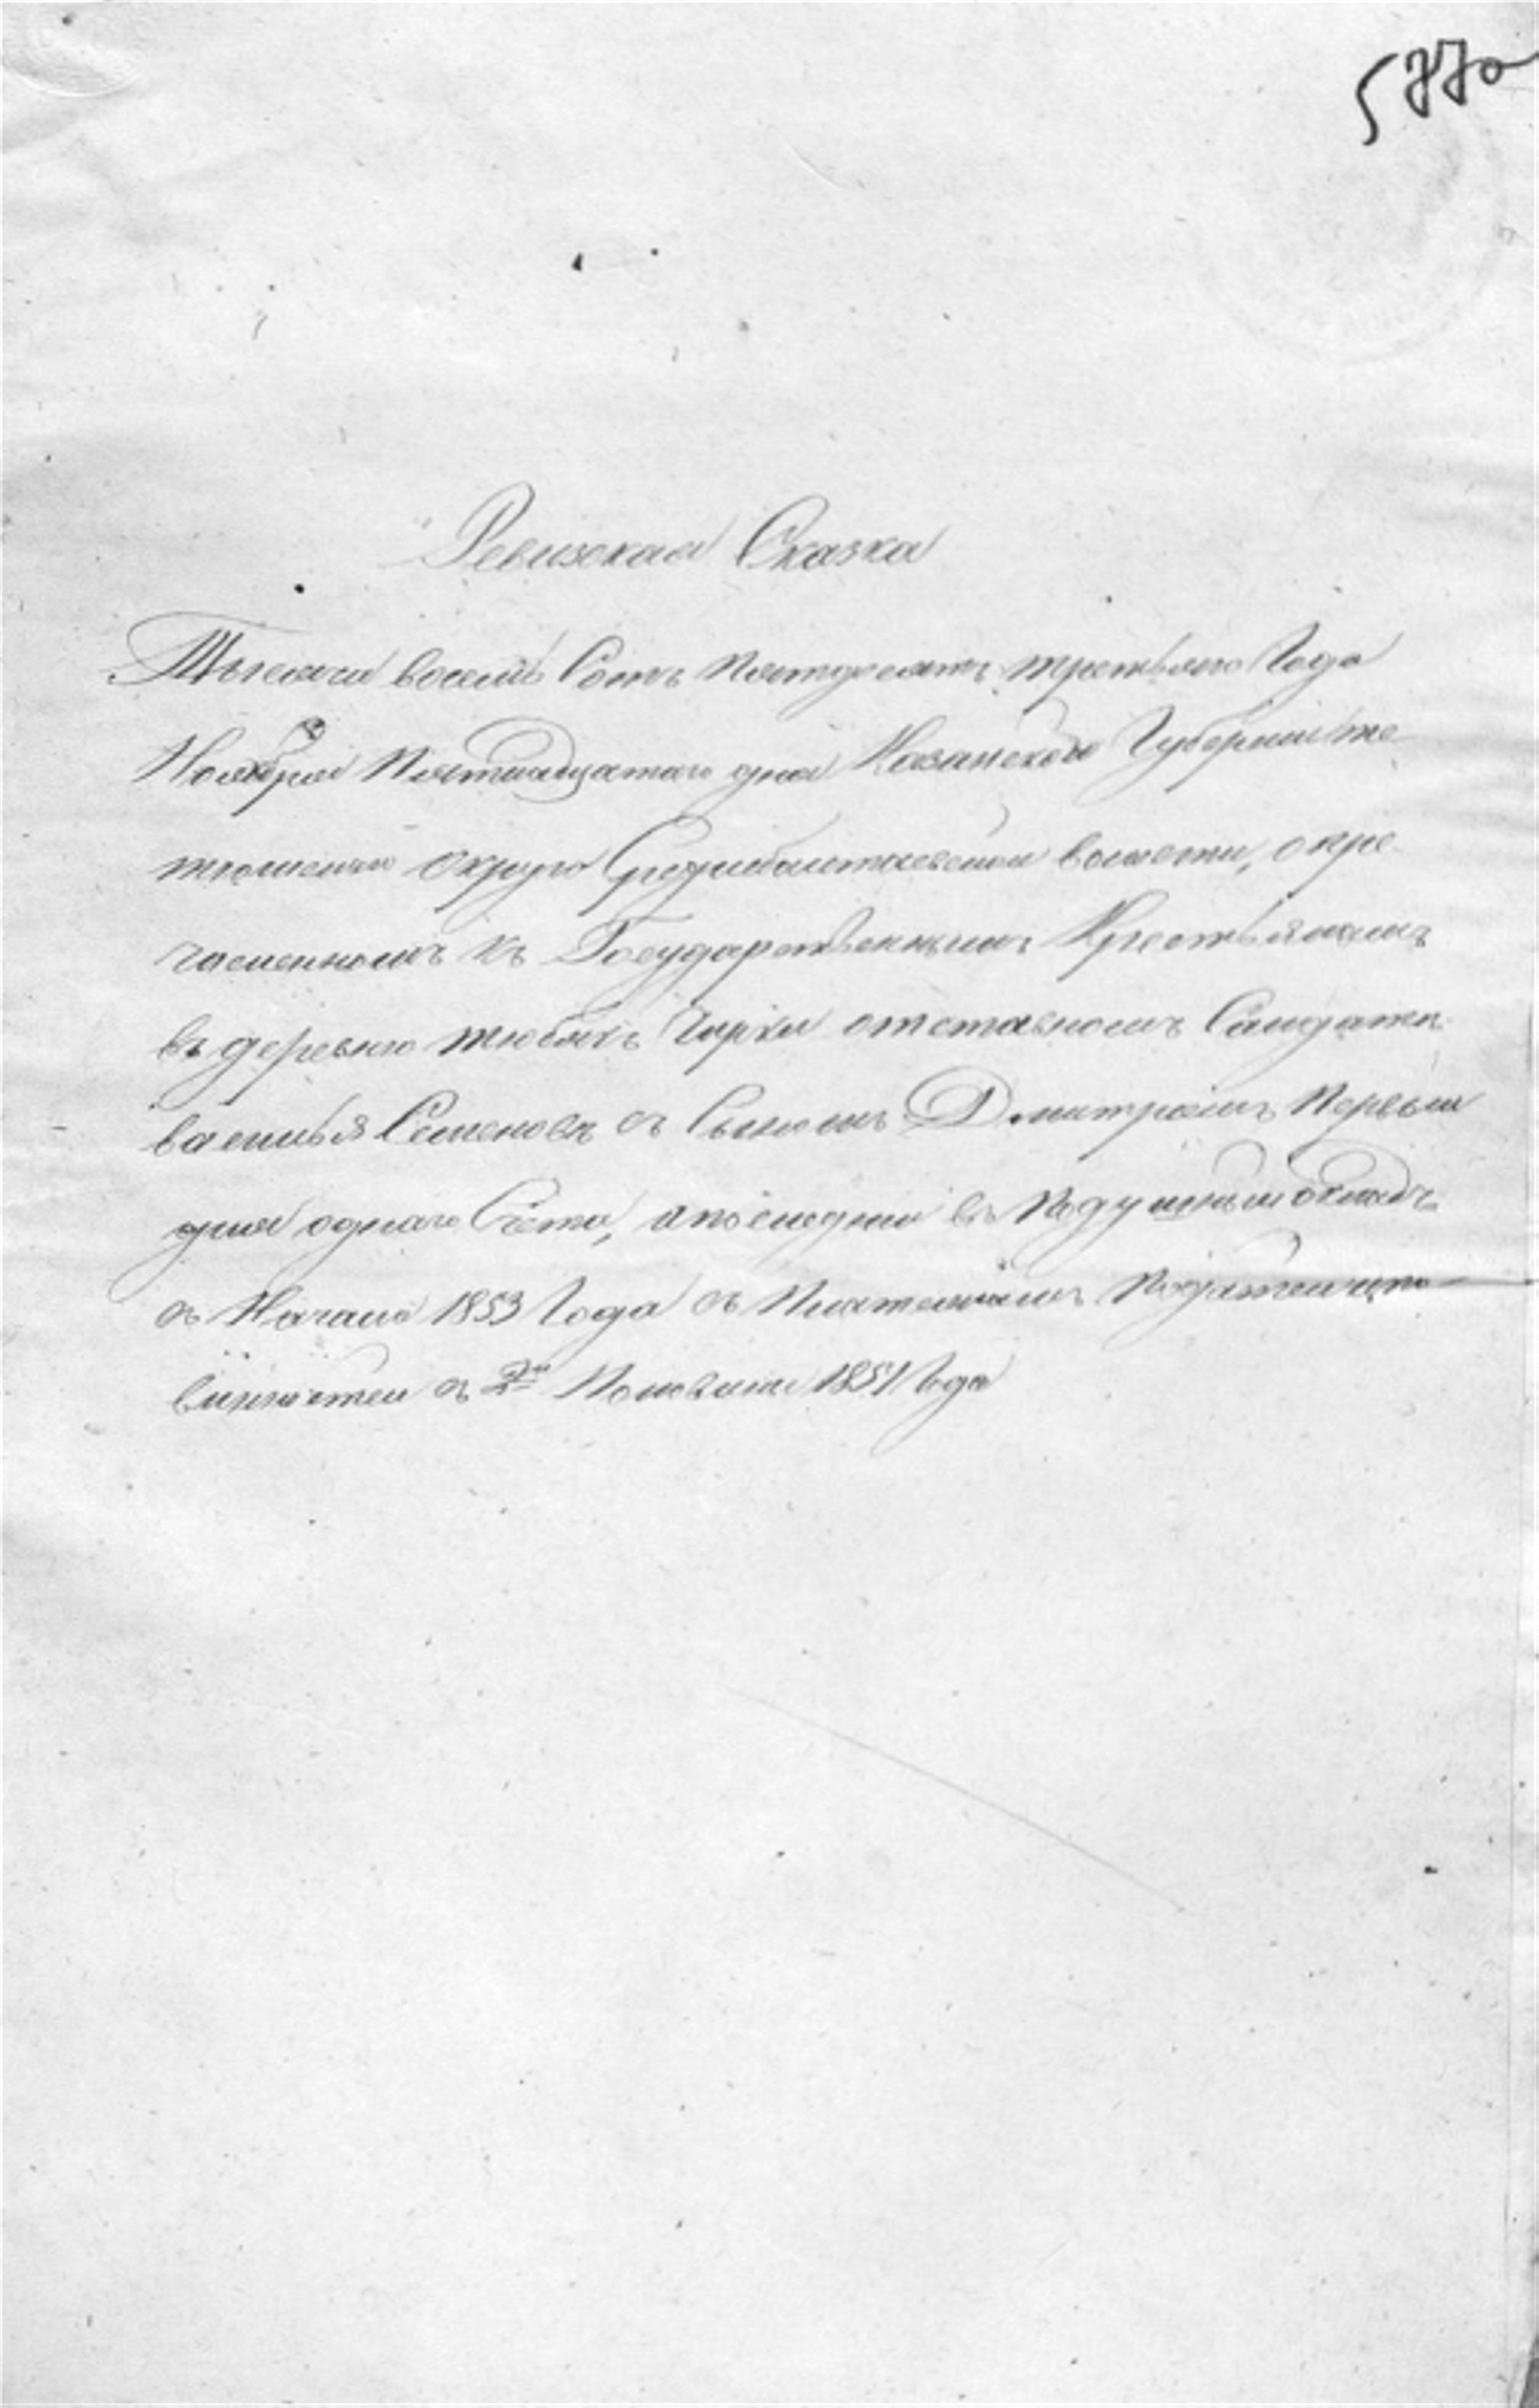 577о
Ревизская Сказка
Тысяча восемь Сотъ Пятьдесятъ третьяго Года
Ноября Пятнадцатаго дня Казанской Губерніи те
тюшскаго округа волости, о при
численномъ къ Государственнымъ Крестьянамъ
въ деревню тюбякъ Чирки отставномъ Салдатѣ
васильѣ Семеновѣ съ Сыномъ Дмитріемъ Первый
для однаго Счета, а последній въ Подушный окладъ
съ Начала 1853 Года съ Платежомъ
съ 2й Половины 1851 Года